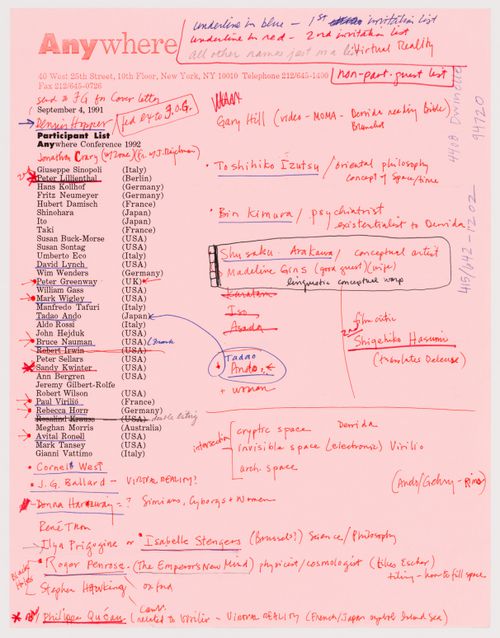 underline in blue – 1st invitation list
underline in red – 2nd invitation list
all other names just on a list
Virtual Reality
Anywhere
non-part. guest list
40 West 25th Street, 10th Floor, New York, NY 10010 Telephone 212/645-1400
Fax 212/645-0726
send to FG for cover letter
September 4, 1991
Dennis Hopper
fed ex to F.O.G.
Participant List
Anywhere Conference 1992
Jonathan Crary
Giuseppe Sinopoli (Italy)
Peter Lillienthal (Berlin)
Hans Kollhof (Germany)
Fritz Neumeyer (Germany)
Hubert Damisch (France)
Shinohara (Japan)
Ito (Japan)
Taki (France)
Susan Buck-Morse (USA)
Susan Sontag (USA)
Umberto Eco (Italy)
David Lynch (USA)
Wim Wenders (Germany)
Peter Greenway (UK)
William Gass (USA)
Mark Wigley (USA)
Manfredo Tafuri (Italy)
Tadao Ando (Japan)
Aldo Rossi (Italy)
John Hejduk (USA)
Bruce Nauman (USA)
Robert Irwin (USA)
Peter Sellars (USA)
Sandy Kwinter (USA)
Ann Bergren (USA)
Jeremy Gilbert-Rolfe
Robert Wilson (USA)
Paul Virilio (France)
Rebecca Horn (Germany)
Rosalind Krauss (USA)
Meghan Morris (Australia)
Avital Ronell (USA)
Mark Tansey (USA)
Gianni Vattimo (Italy)
• Cornel West
• J.G. Ballard – VIRTUAL REALITY?
Donna Harraway = ? Simians, Cyborgs + Women
René Thom
Ilya Prigogine or • Isabelle Stengers (Brussels?) Science/Philosophy
Black Holes
Roger Penrose (The Emperor's New Mind) physicist/cosmologist (tiles Escher)
tiling – how to fill space
Stephen Hawking oxford
Philippe Quéau (related to Virilio – VIRTUAL REALITY (French/Japan
Gary Hill (video – MOMA – Derrida reading Bible)
Blanchot
4408 Dwinelle
94720
415/642-1202
• Toshihiko Izutsu / oriental philosophy
concept of space/time
• Bin Kimura / psychiatrist
existentialist to Derrida
Shusaku Arakawa / conceptual artist
Madeline Gins (good guest) (wife)
linguistic conceptual
Karatani
Iso
Asada
film critic
Shigehiko Hasumi
(translates Deleuze)
Tadao
Ando
+ woman
intersection
cryptic space Derrida
invisible space (electronic) Virilio
arch. space
(Ando/Gehry –